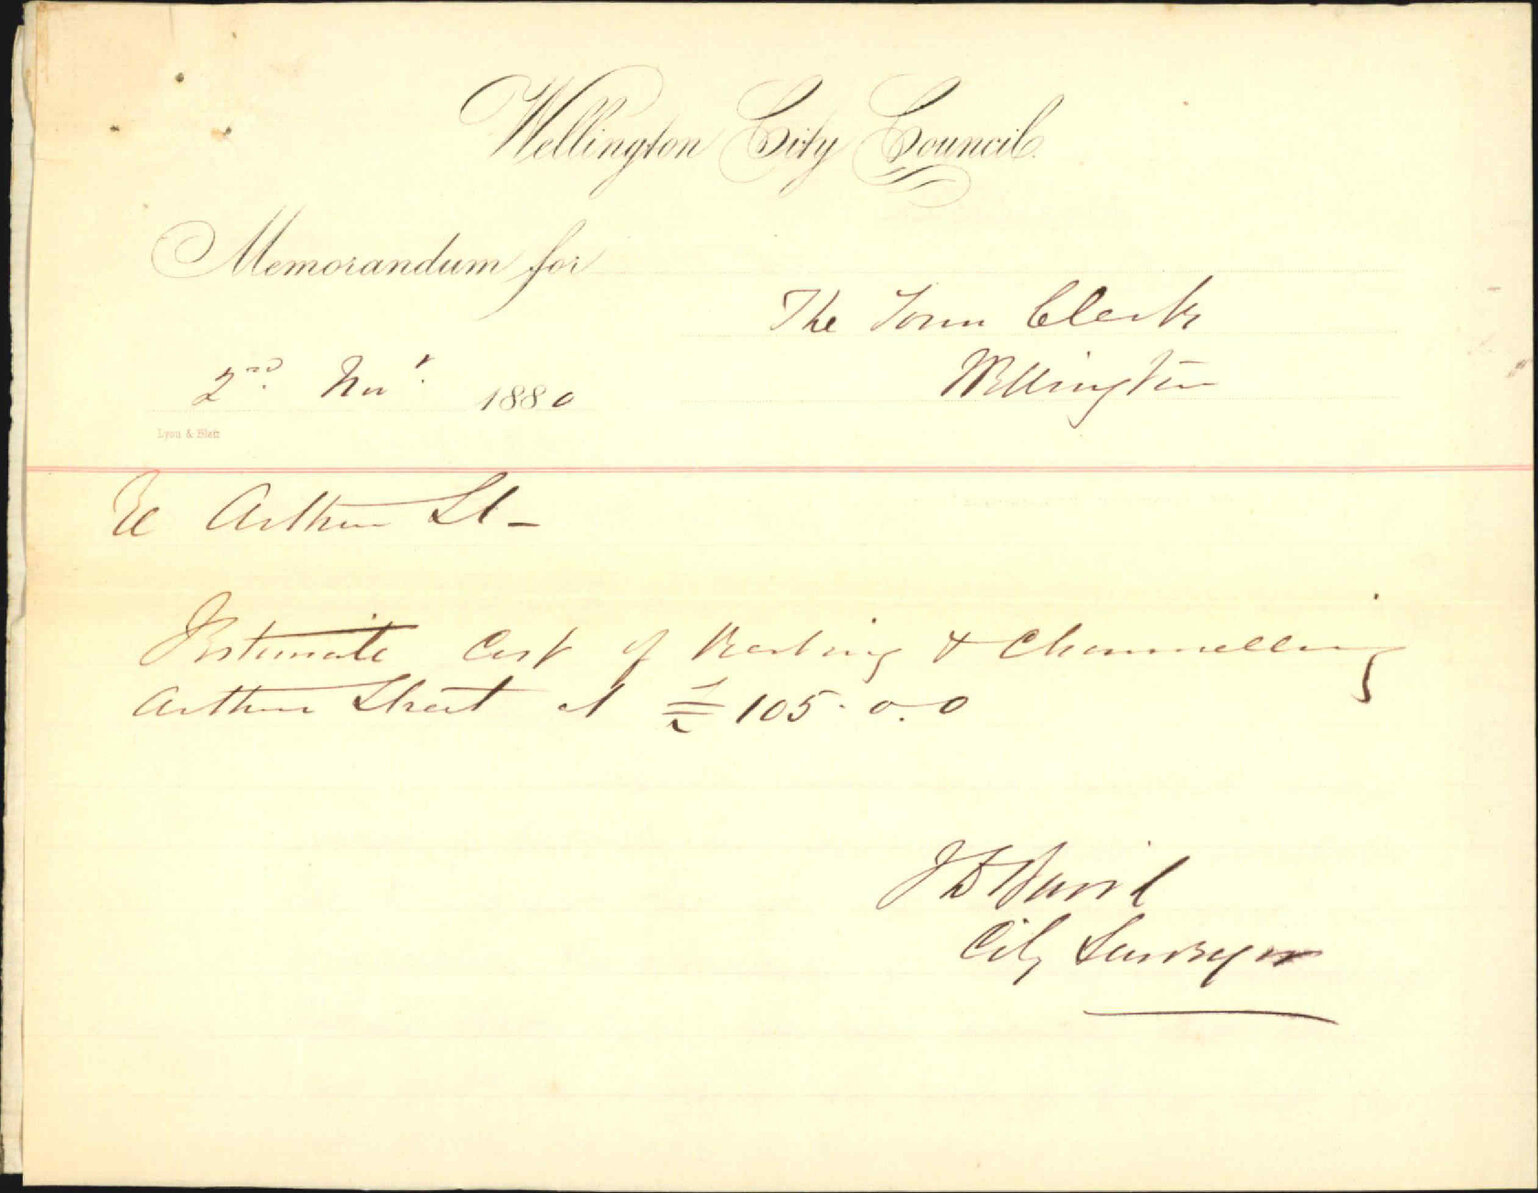 Wellington City Council.
Memorandum for
The Town Clerk
Wellington
2nd Novr. 1880
Lyon & Blair
Re Arthur St -
I Estimate Cost of Kerbing & Channelling
Arthur Street at £105. 0. 0
J D Baird
City Surveyor